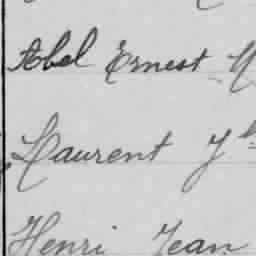 Abel Ernest
Laurent
Henri Jean